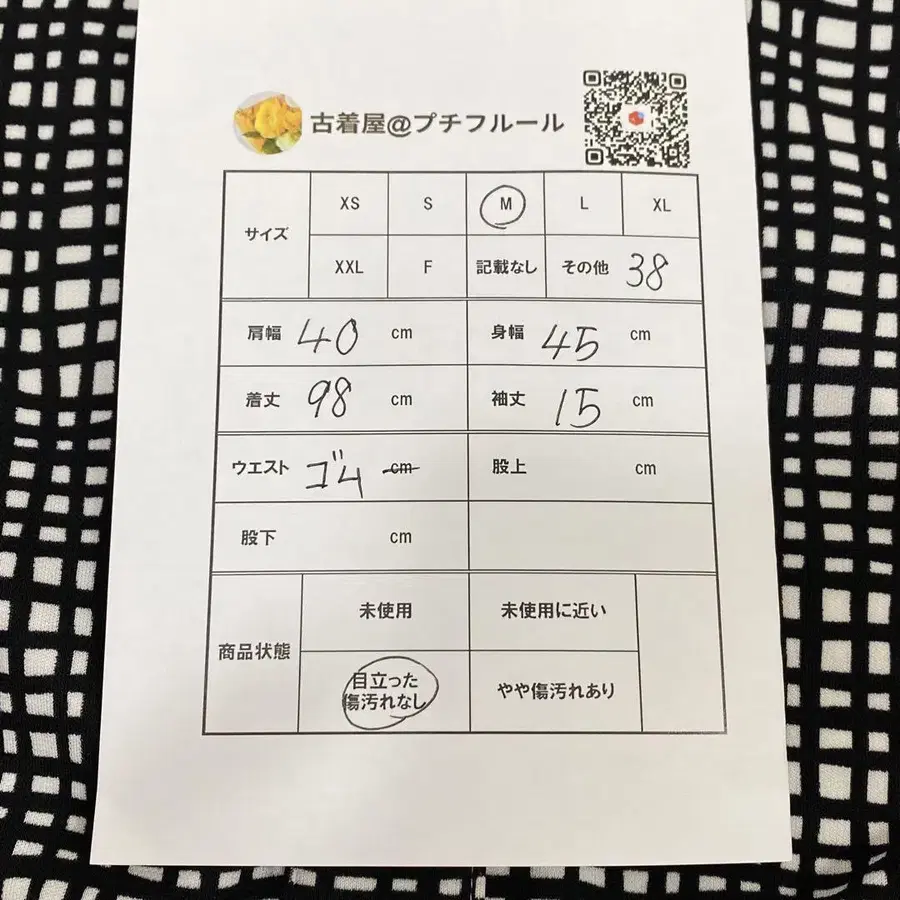 古着屋@プチフルール
サイズ XS S M L XL
XXL F 記載なし その他 38
肩幅 40 cm 身幅 45 cm
着丈 98 cm 袖丈 15 cm
ウエスト ゴム cm 股上 cm
股下 cm
商品状態 未使用 未使用に近い
目立った
傷汚れなし やや傷汚れあり